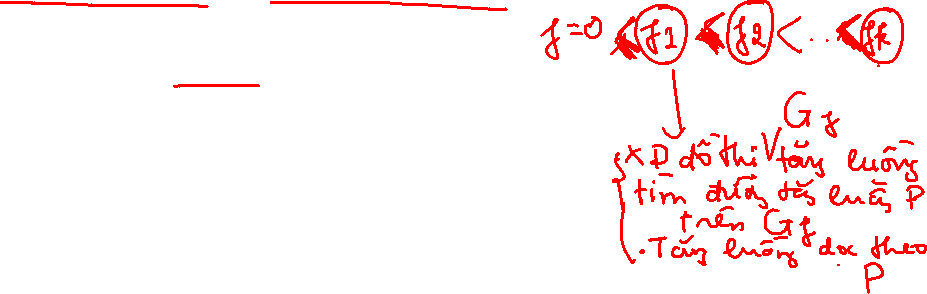 f=0 < f1 < f2 < ... < fk
Gf
XD đồ thị tăng luồng
tìm đường tăng luồng P
trên Gf
. Tăng luồng dọc theo
P